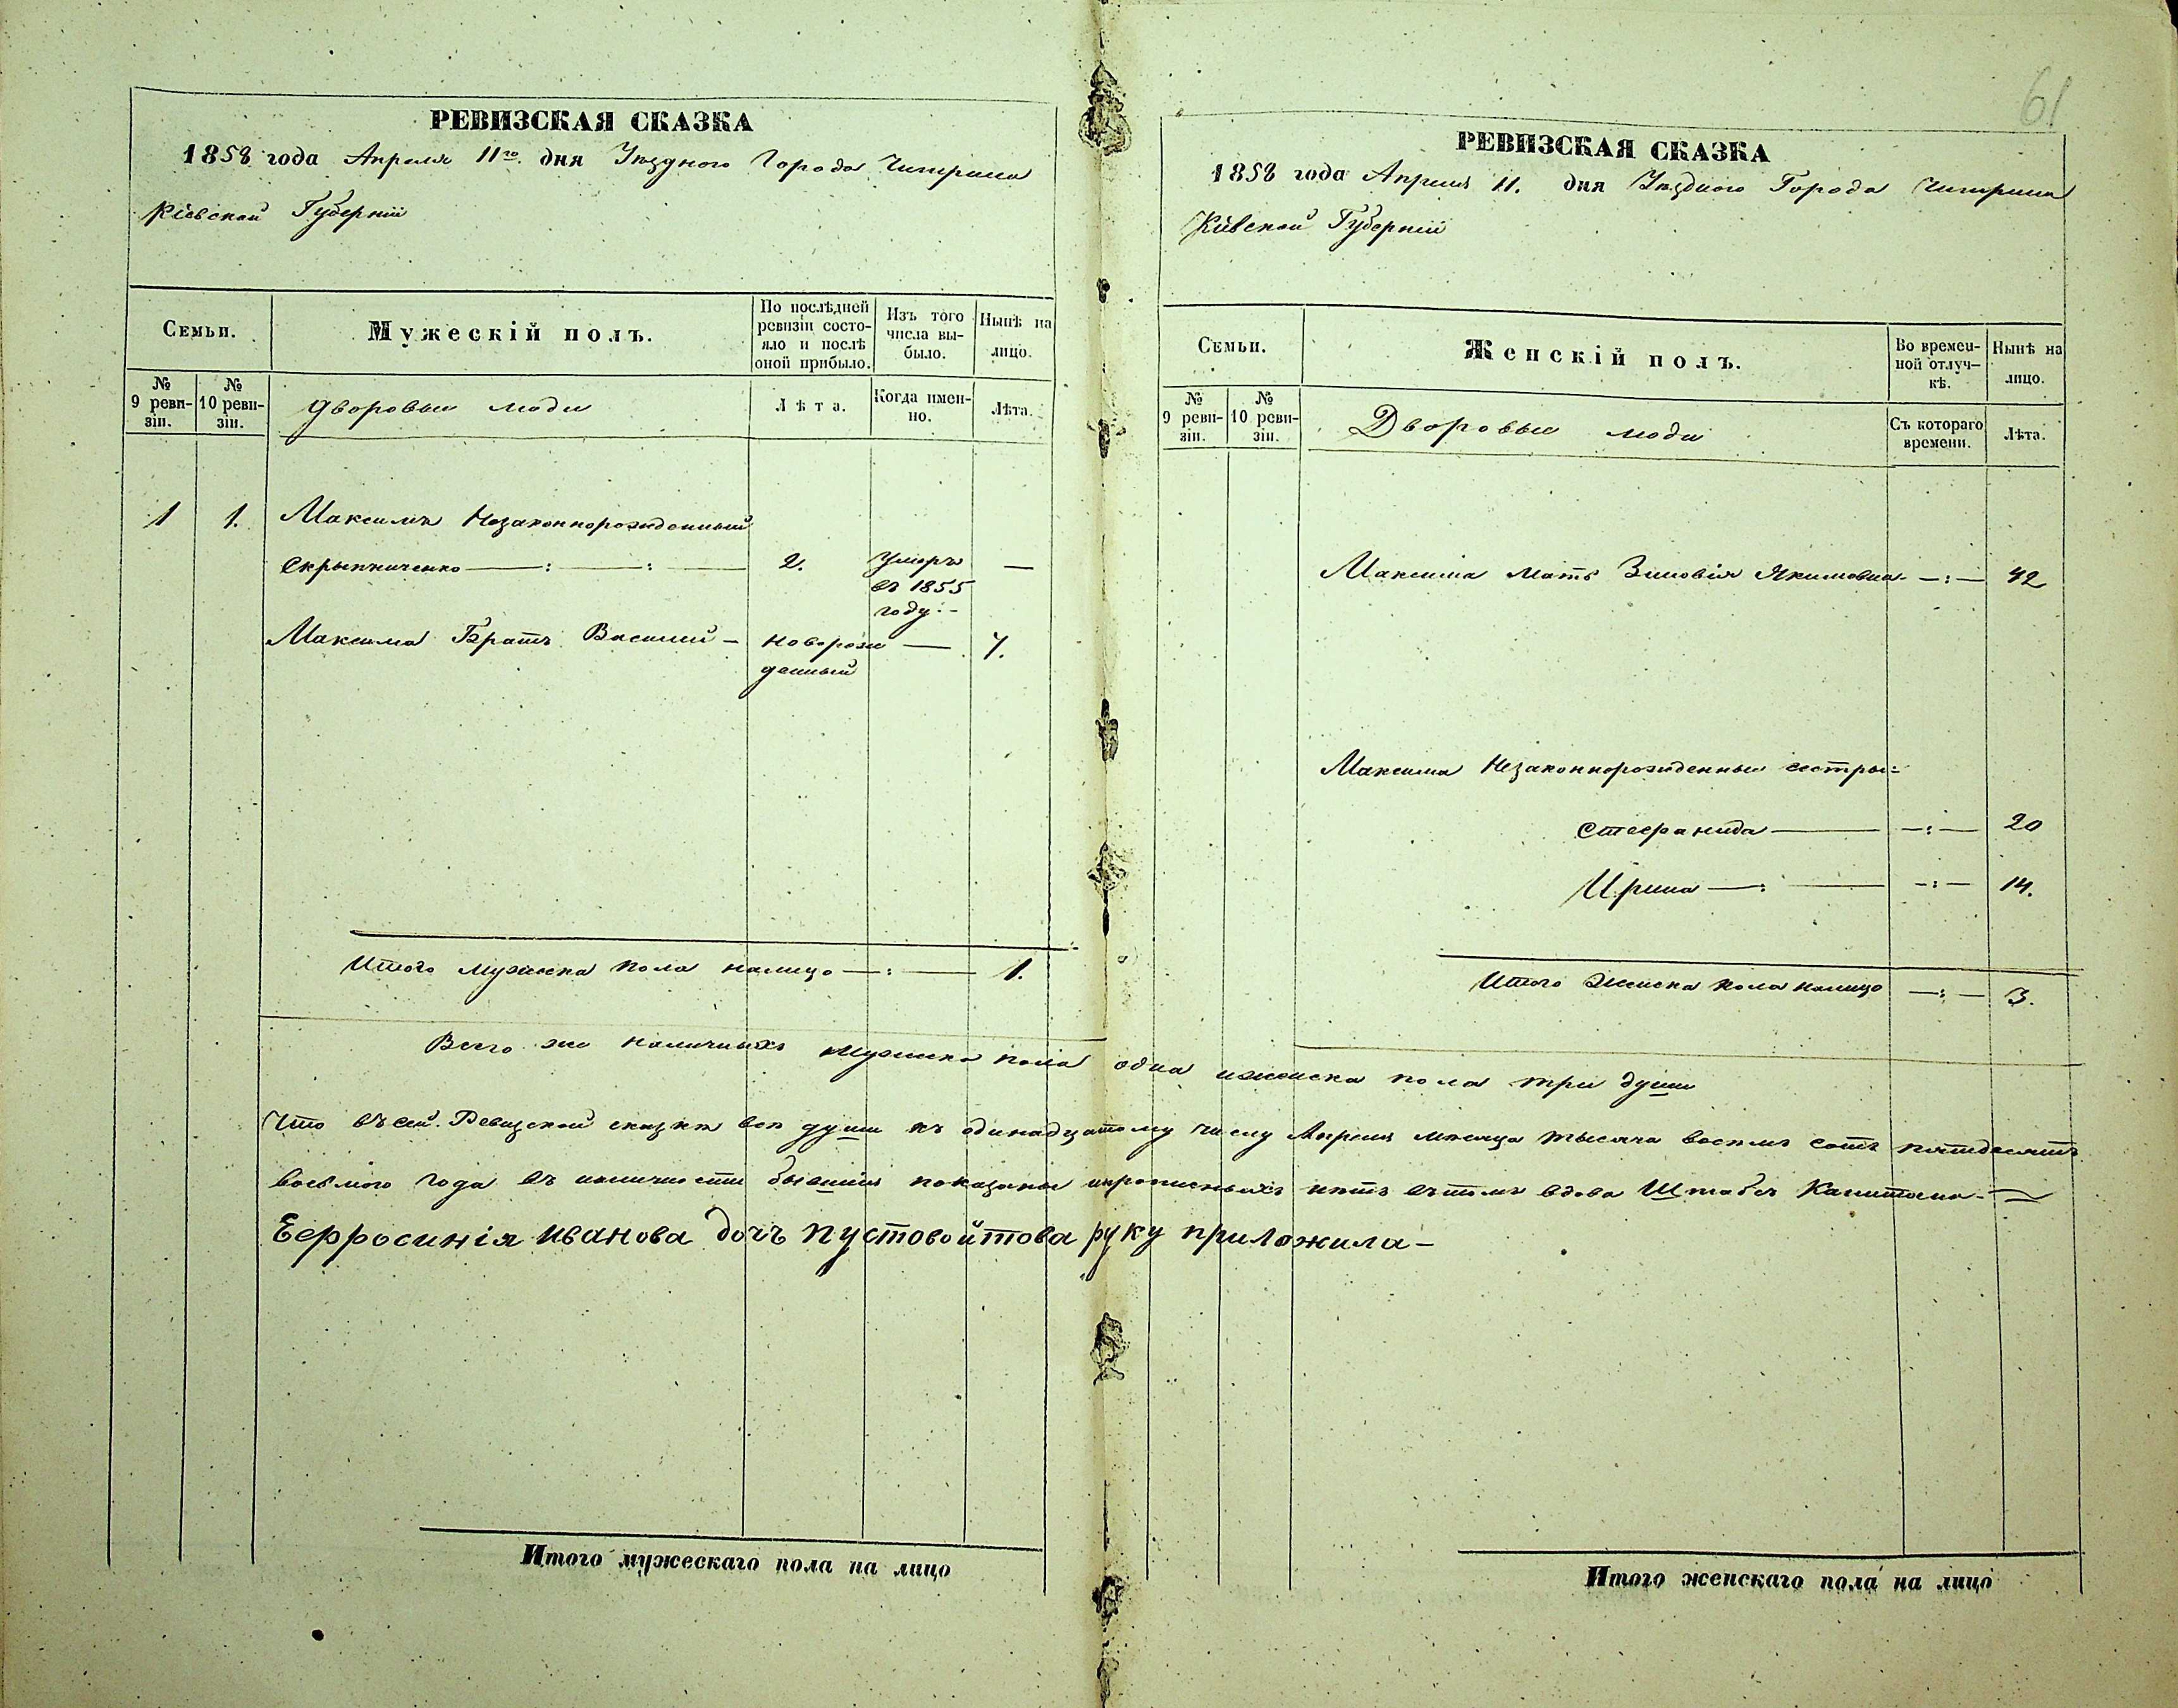 61
РЕВИЗСКАЯ СКАЗКА
1858 года Апреля 11го. дня Уѣзднаго Города Чигирина
Кіевской Губерніи
Семьи.
Мужескій полъ.
По послѣдней ревизіи состояло и послѣ оной прибыло.
Изъ того числа выбыло.
Нынѣ на лицо.
№ 9 ревизіи.
№ 10 ревизіи.
Дворовыи люди
Лѣта.
Когда именно.
Лѣта.
1 1. Максимъ Незаконнорожденный
Скрыпниченко 2. Умеръ —
въ 1855
году
Максима Братъ Василий — Новорож — 7.
денный
Итого мужеска пола налицо —:— 1.
Итого мужескаго пола на лицо
РЕВИЗСКАЯ СКАЗКА
1858 года Апреля 11. дня Уѣзднаго Города Чигирина
Кіевской Губерніи
Семьи.
Женскій полъ.
Во временной отлучкѣ.
Нынѣ на лицо.
№ 9 ревизіи.
№ 10 ревизіи.
Дворовыи люди
Съ котораго времени.
Лѣта.
Максима мать Зиновія Якимовна —:— 42
Максима Незаконнорожденныи сестры:
Стефанида —:— 20
Ирина —:— 14.
Итого женска пола налицо —:— 3.
Итого женскаго пола на лицо
Всего же наличныхъ мужеска пола одна и женска пола три души
Что въ сей Ревизской сказкѣ все души къ одинадцатому числу Апреля месяца тысяча восемъ сотъ пятдесятъ
восьмого года въ наличности бывшіи показаны и прописныхъ нѣтъ въ томъ вдова Штабсъ Капитана
Еефросинія иванова дочь пустовойтова руку приложила —